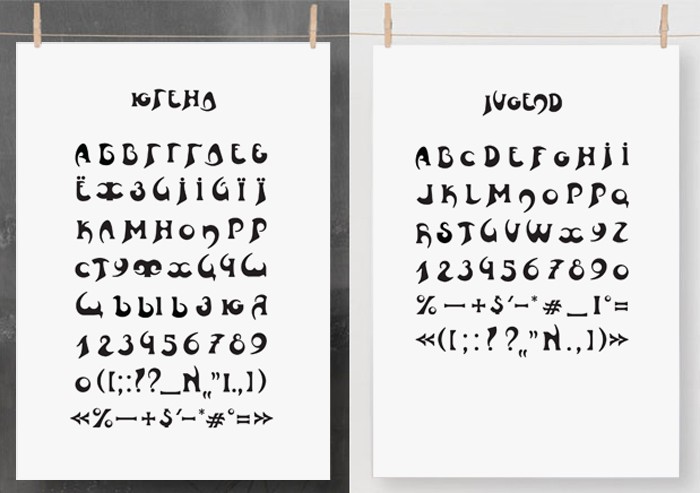 ЮГЕНД
АБВГҐГДЕЄ
ЁЖЗИЈІЙЇЇ
КЛМНОПРР
СТУФХЦЧШ
ЩЪЫЬЭЮЯ
123456789
0([;:!?_№„”I.,])
«%—+$′–*#°=»
JUGEND
ABCDEFGHİI
JKLMNOPPQ
RSTGUVWXYZ
1234567890
%—+$′–*#_I°=
«([;:!?„”№.,])»